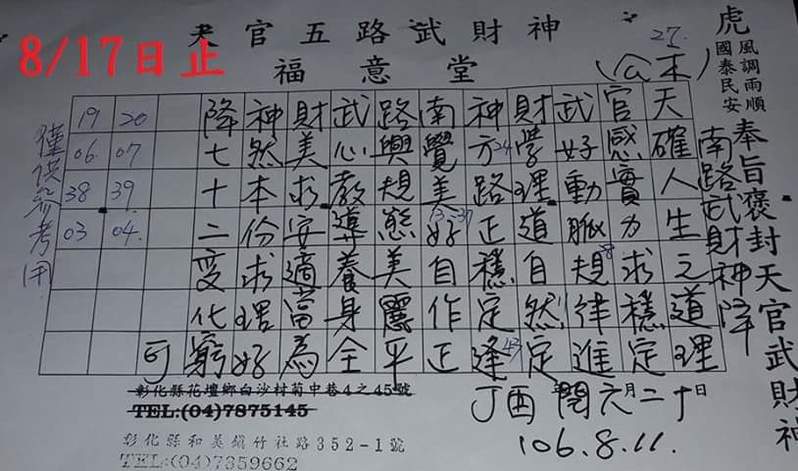 天官五路武財神
8/17日止
福意堂
27.
(公不)
虎
風調雨順
國泰民安
奉旨褒封天官武財神
南路武財神降
天確人生之道理
官感實力求穩定
武好動脈規律進
財學理道自然定
神方路正穩定逢
南覺美好自作正
路興規態美麗平
武心教導養身全
財美求安適當為
神然本份求理好
降七十二變化窮
可
24
13-37
8
43
19 20
06 07
38 39
03 04.
僅供參考用
彰化縣花壇鄉白沙村菊中巷4之45號
TEL:(04)7875145
彰化縣和美鎮竹社路352-1號
TEL:(04)7359662
丁酉 閏六月二十日
106.8.11.